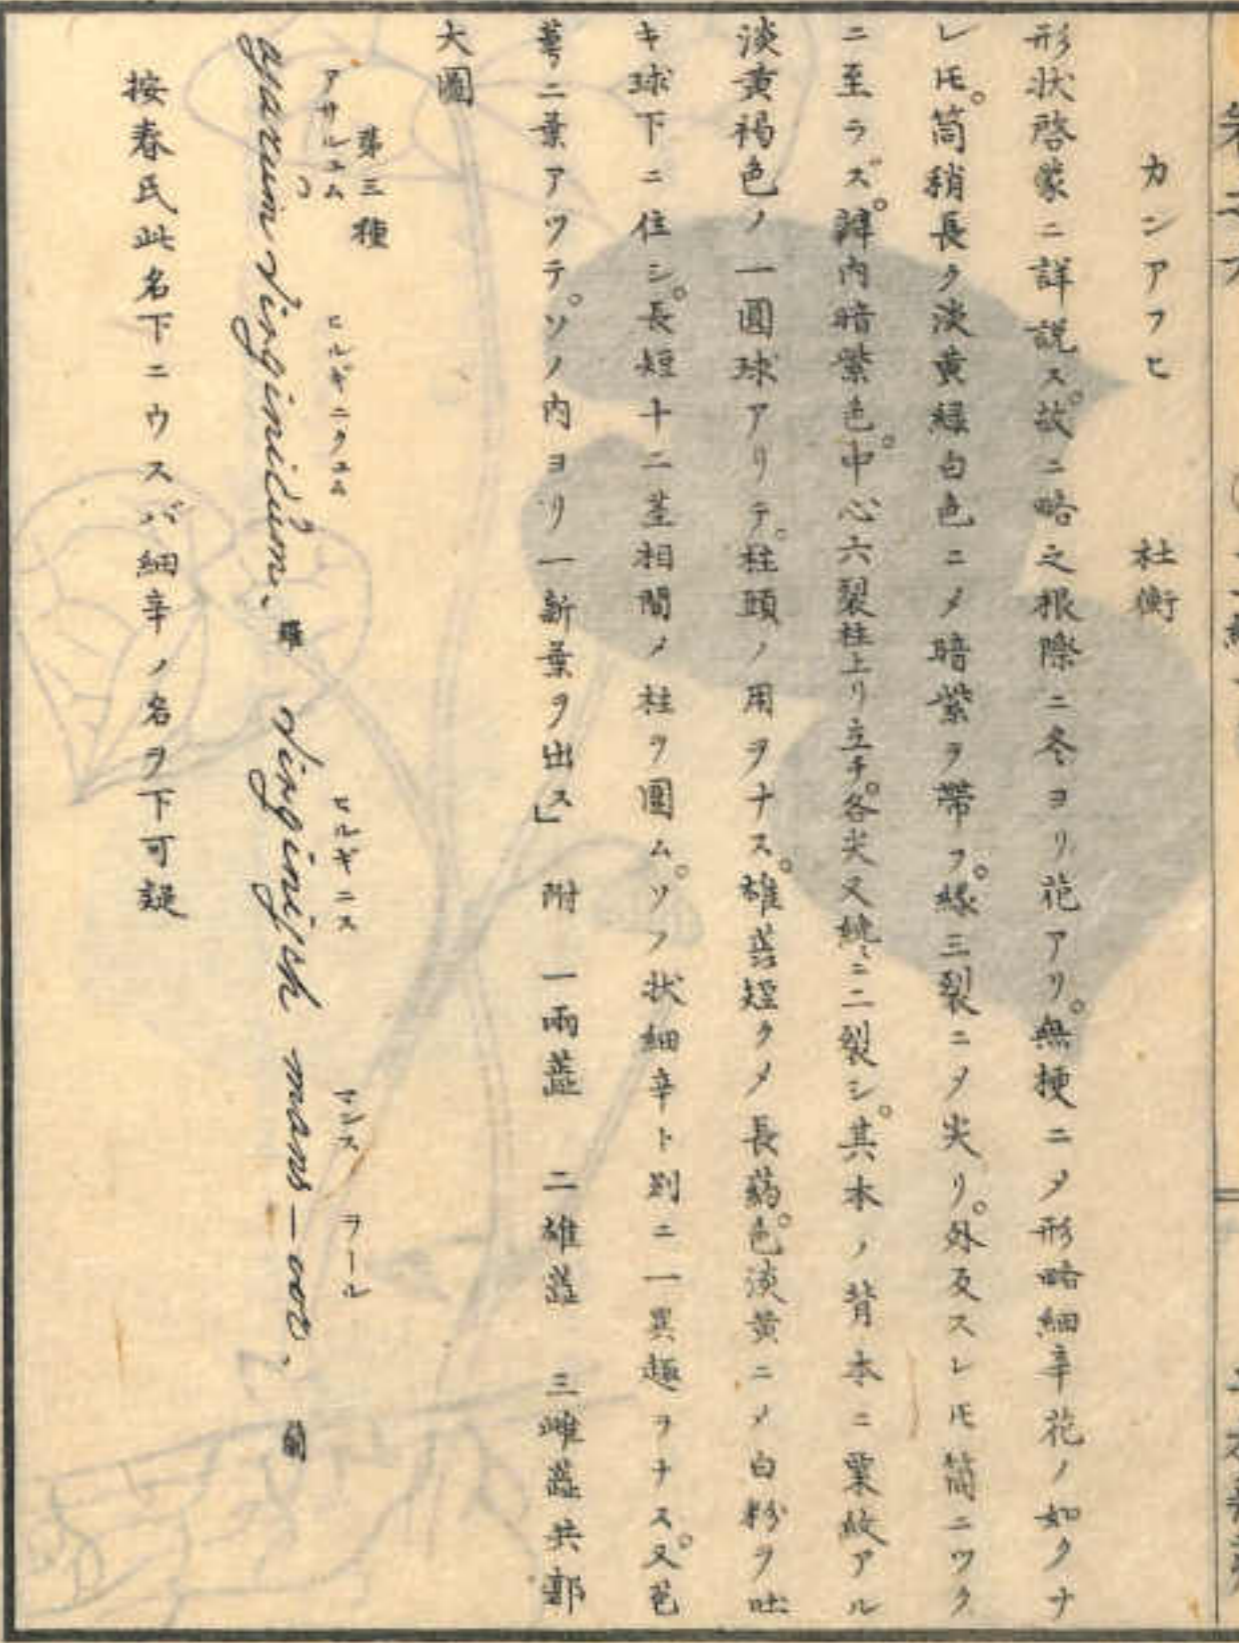 カンアフヒ　杜衡
形状啓蒙ニ詳説ス。故ニ略之根際ニ冬ヨリ花アリ。無梗ニメ形略細辛花ノ如クナ
レ𪜈。筒稍長ク淡黄緑白色ニメ暗紫ヲ帶フ。緣三裂ニメ尖リ。外反スレ𪜈筒ニツク
ニ至ラズ。辨内暗紫色。中心六裂柱上リ立チ。各尖又纔ニ二裂シ。其本ノ背本ニ粟紋アル
淡黄褐色ノ一圓球アリテ。柱頭ノ用ヲナス。雄蘂短クメ長葯。色淡黄ニメ白粉ヲ吐
キ球下ニ住シ。長短十二莖相間メ柱ヲ圍ム。ソノ状細辛ト別ニ一異趣ヲナス。又苞
萼ニ葉アツテ。ソノ内ヨリ一新葉ヲ出ス」　附　一兩蘂　二雄蘂　三雌蘂共郭
大圖
第三種
アサルユム　ヒルギニクユム　ヒルギニス　マンス　ヲール
asarum virginicum、羅 virginisch mans-oor、蘭
按春氏此名下ニウスバ細辛ノ名ヲ下可疑